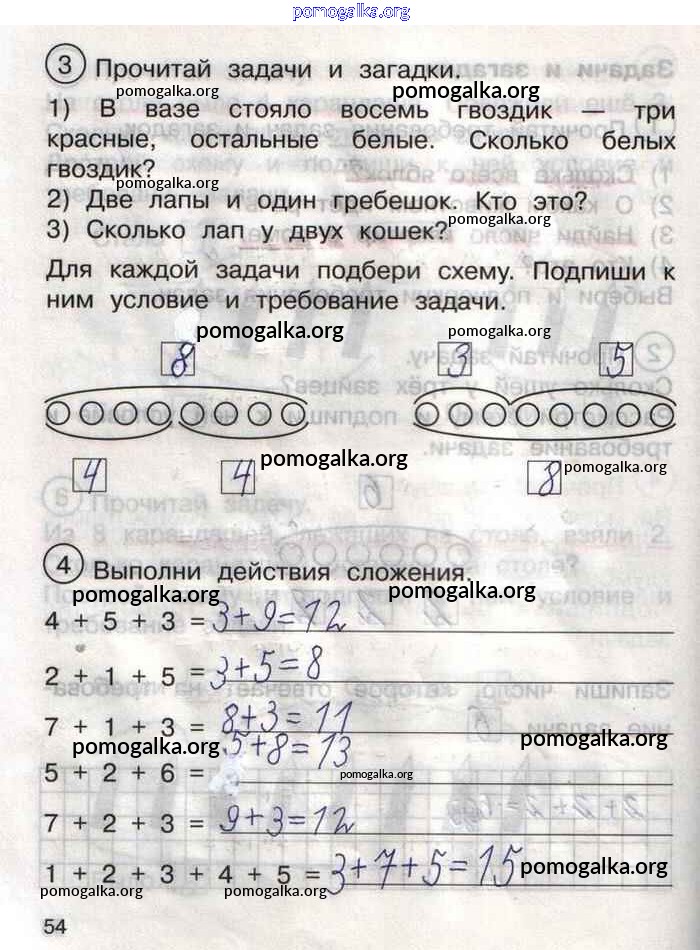 pomogalka.org
3 Прочитай задачи и загадки.
pomogalka.org pomogalka.org
1) В вазе стояло восемь гвоздик — три
красные, остальные белые. Сколько белых
гвоздик?
pomogalka.org
2) Две лапы и один гребешок. Кто это?
pomogalka.org
3) Сколько лап у двух кошек?
Для каждой задачи подбери схему. Подпиши к
ним условие и требование задачи.
pomogalka.org pomogalka.org
8 3 5
4 4 8
pomogalka.org pomogalka.org
4 Выполни действия сложения.
pomogalka.org pomogalka.org
4 + 5 + 3 = 3+9=12
2 + 1 + 5 = 3+5=8
7 + 1 + 3 = 8+3=11
pomogalka.org pomogalka.org
5 + 2 + 6 = 5+8=13
pomogalka.org
7 + 2 + 3 = 9+3=12
1 + 2 + 3 + 4 + 5 = 3+7+5=15
pomogalka.org
pomogalka.org pomogalka.org
54